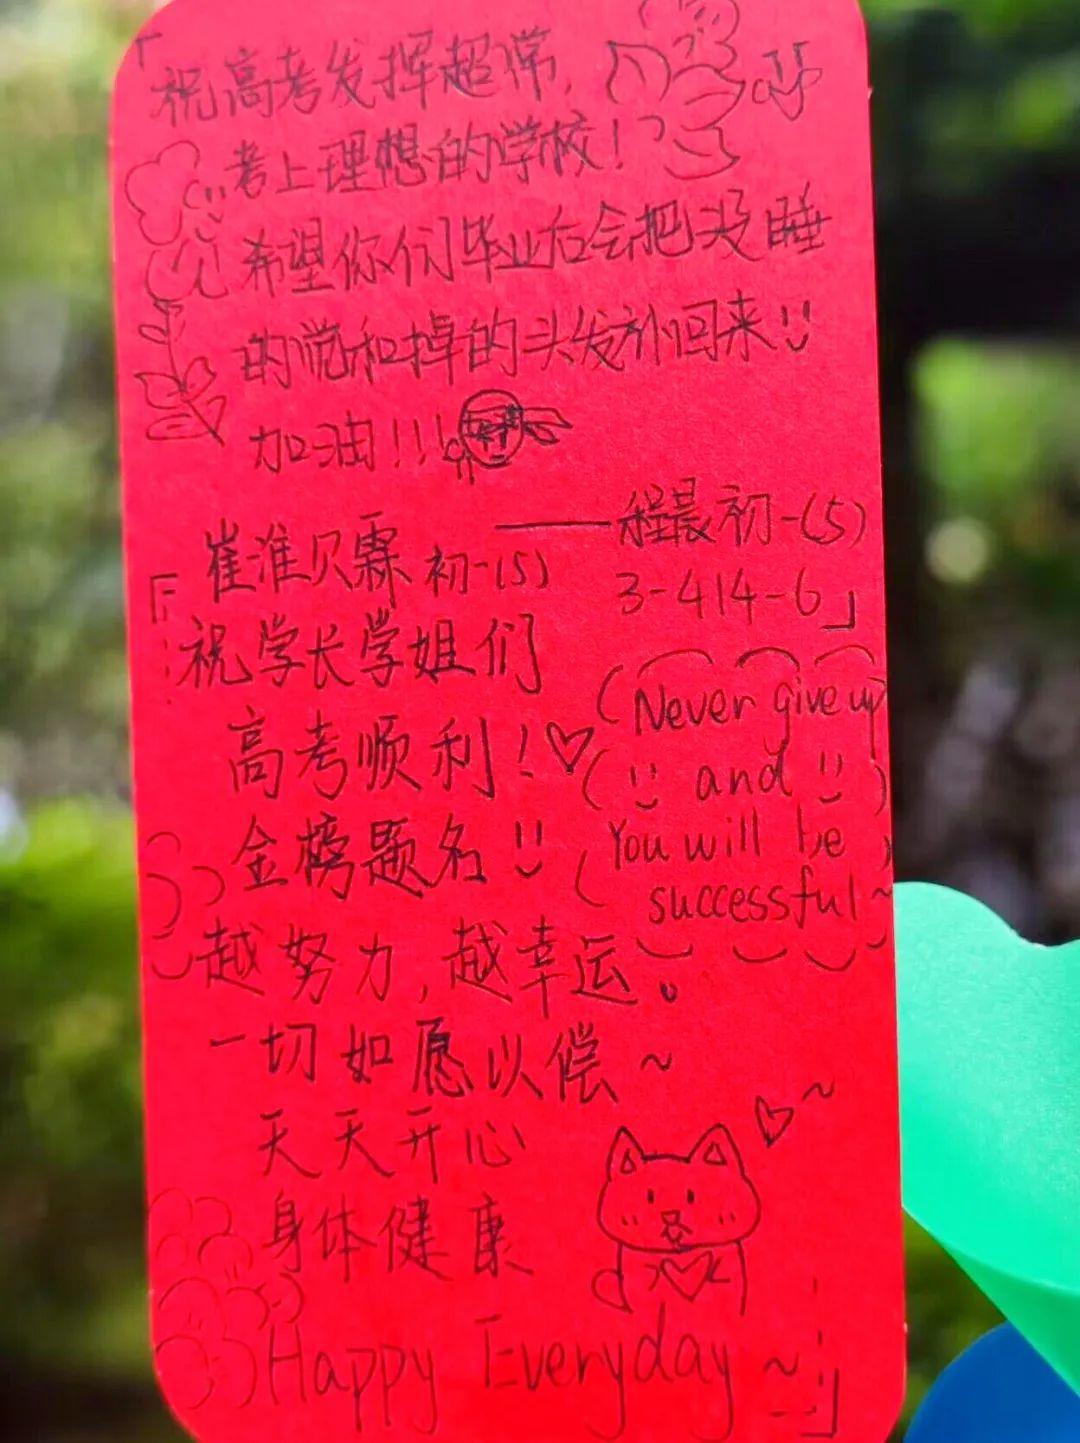 「祝高考发挥超常,
考上理想的学校!
希望你们毕业后会把没睡
的觉和掉的头发补回来!!
加油!!!
——程晨初一(5)
3-414-6」
「崔淮贝霖初一(5)
祝学长学姐们
高考顺利!
金榜题名!!
Never give up
and
You will be
successful~
越努力,越幸运。
一切如愿以偿~
天天开心
身体健康
Happy Everyday~」